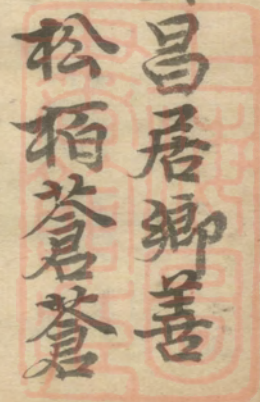 昌居鄉善
松栢蒼蒼